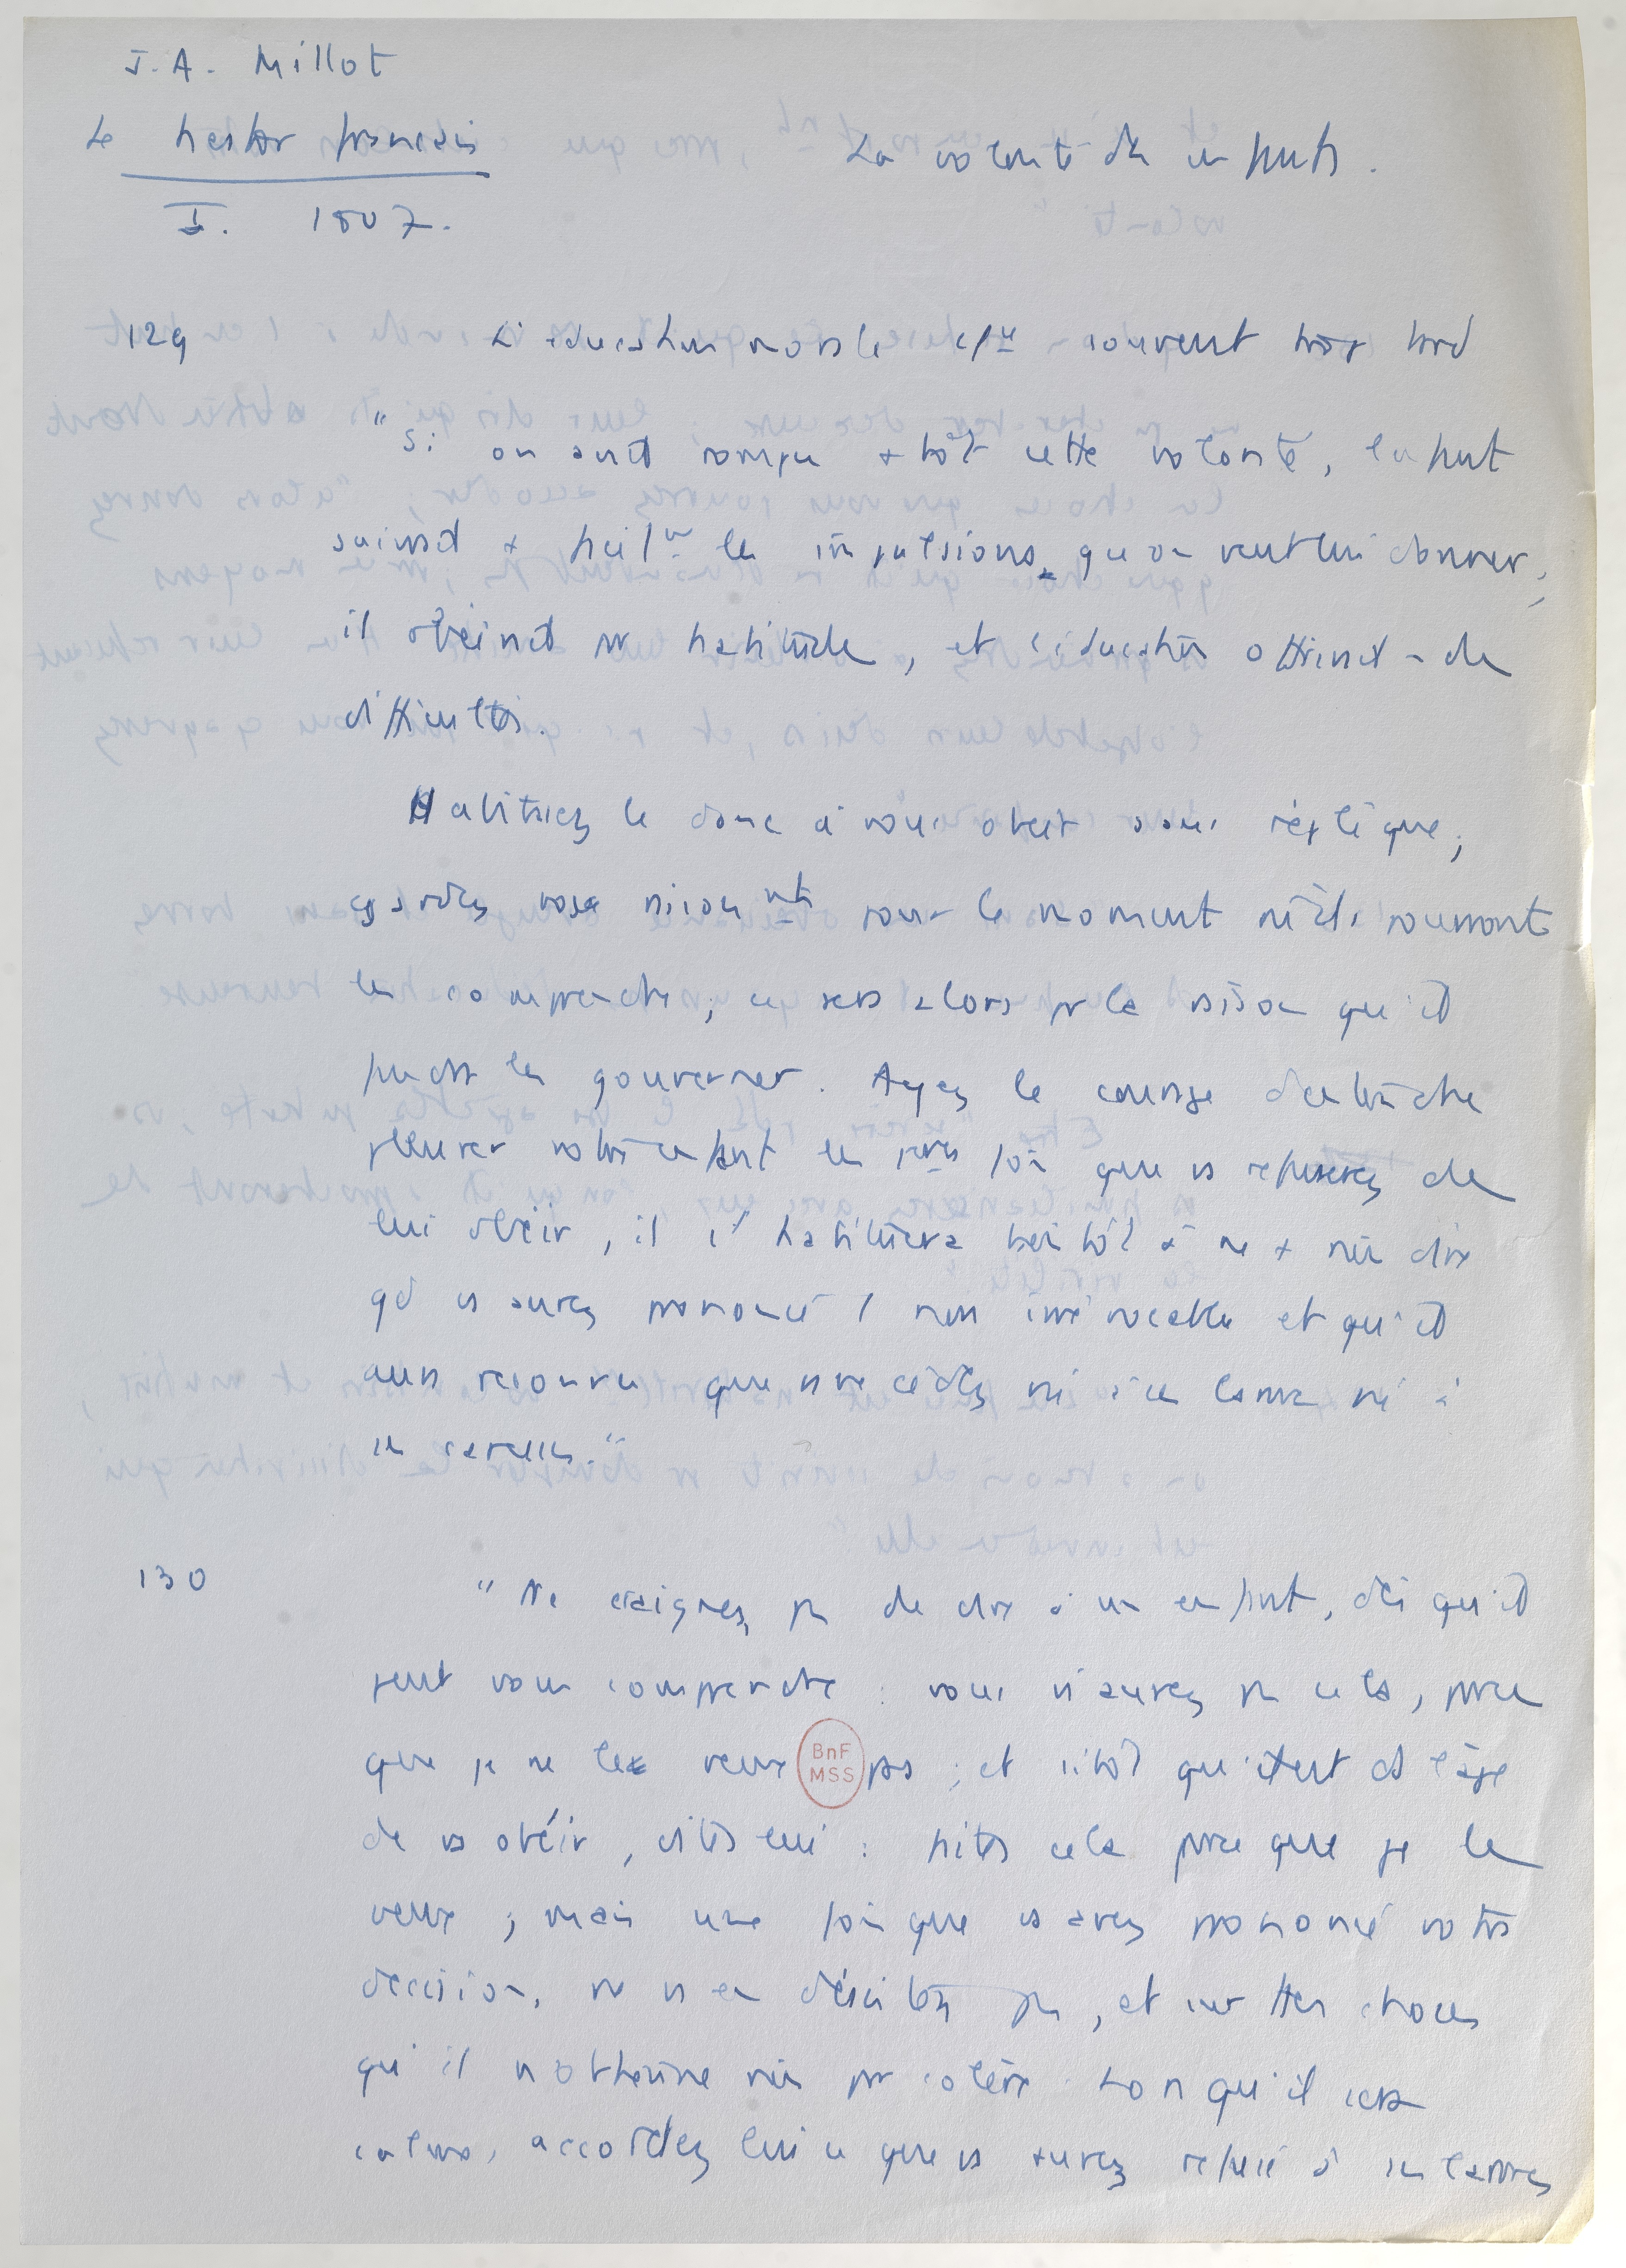 J. A. Millot
Le Nestor français
La volonté des enfants.
I. 1807.
129 L'éducation morale souvent trop tard
"Si on avait rompu + tôt cette volonté, l'enfant
suivrait + facilmt les impulsions qu'on veut lui donner ;
il obéirait par habitude, et l'éducation offrirait - de
difficultés.
Habituez le donc à vous obéir sans réplique,
gardez vos raisonnmts pour le moment où ils pourront
les comprendre ; ce sera alors par la raison qu'il
faudra les gouverner. Ayez le courage d'entendre
pleurer votre enfant les 1ères fois que vs refuserez de
lui obéir, il s'habituera bientôt à ne + rien dire
qd vs aurez prononcé 1 non irrévocable et qu'il
aura reconnu que vs ne cédez ni à ses larmes ni à
ses caresses."
130 "Ne craignez pas de dire à un enfant, dès qu'il
peut vous comprendre : vous n'aurez pas cela, parce
que je ne le veux pas ; et sitôt qu'il est d l'âge
BnF
MSS
de vs obéir, dites lui : faites cela parce que je le
veux ; mais une fois que vs avez prononcé votre
décision, ne vs en désistez pas, et sur ttes choses
qu'il n'obtienne rien par colère. Lorsqu'il sera
calme, accordez lui ce que vs aurez refusé à ses larmes